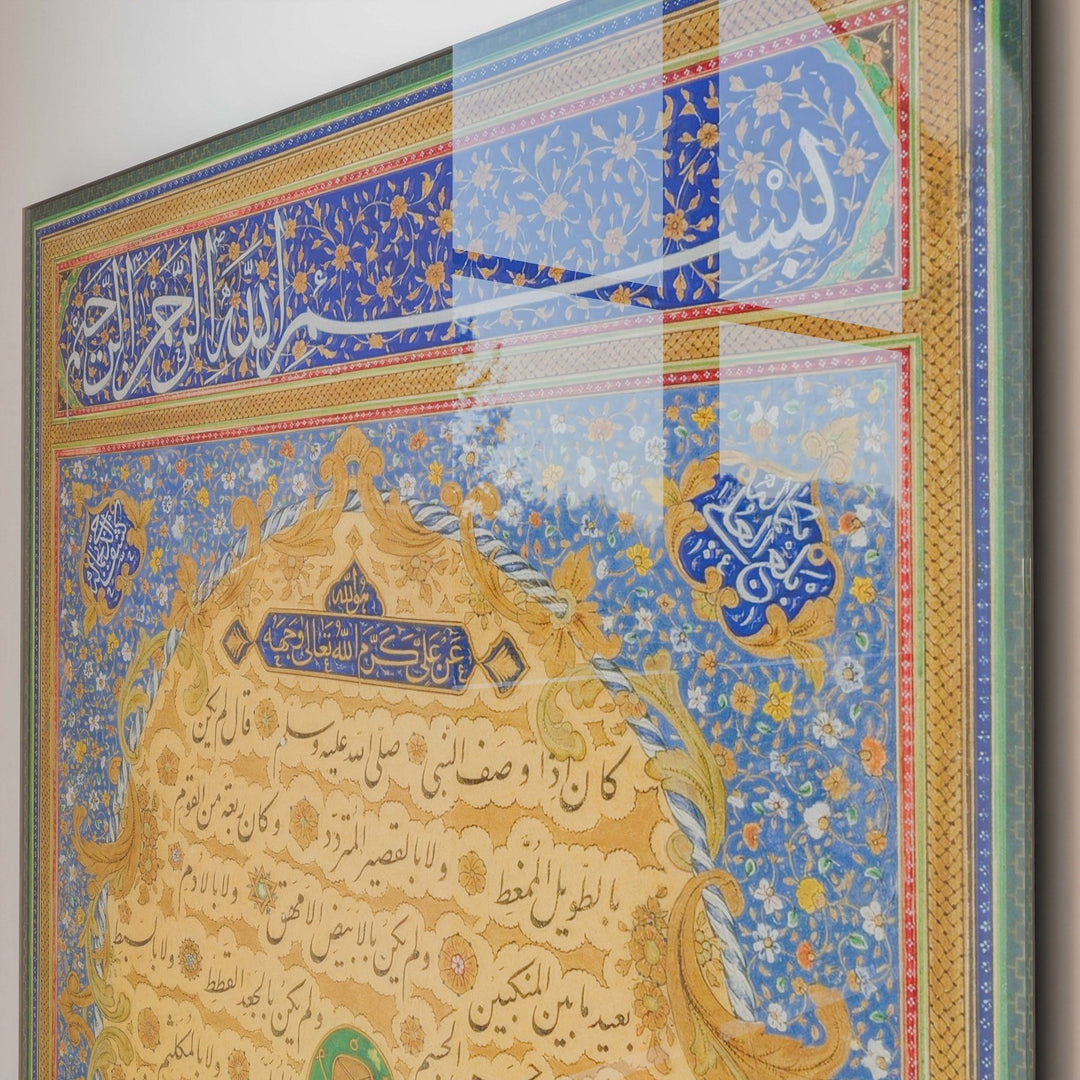 بسم الله الرحمن الرحيم
هو الله
عن علي كرم الله تعالى وجهه
كان اذا وصف النبي صلى الله عليه وسلم قال لم يكن
بالطويل الممغط ولا بالقصير المتردد وكان ربعة من القوم
بعيد ما بين المنكبين ولم يكن بالابيض الامهق ولا بالادم
ولم يكن بالجعد القطط ولا بالسبط
ولا بالمكلثم